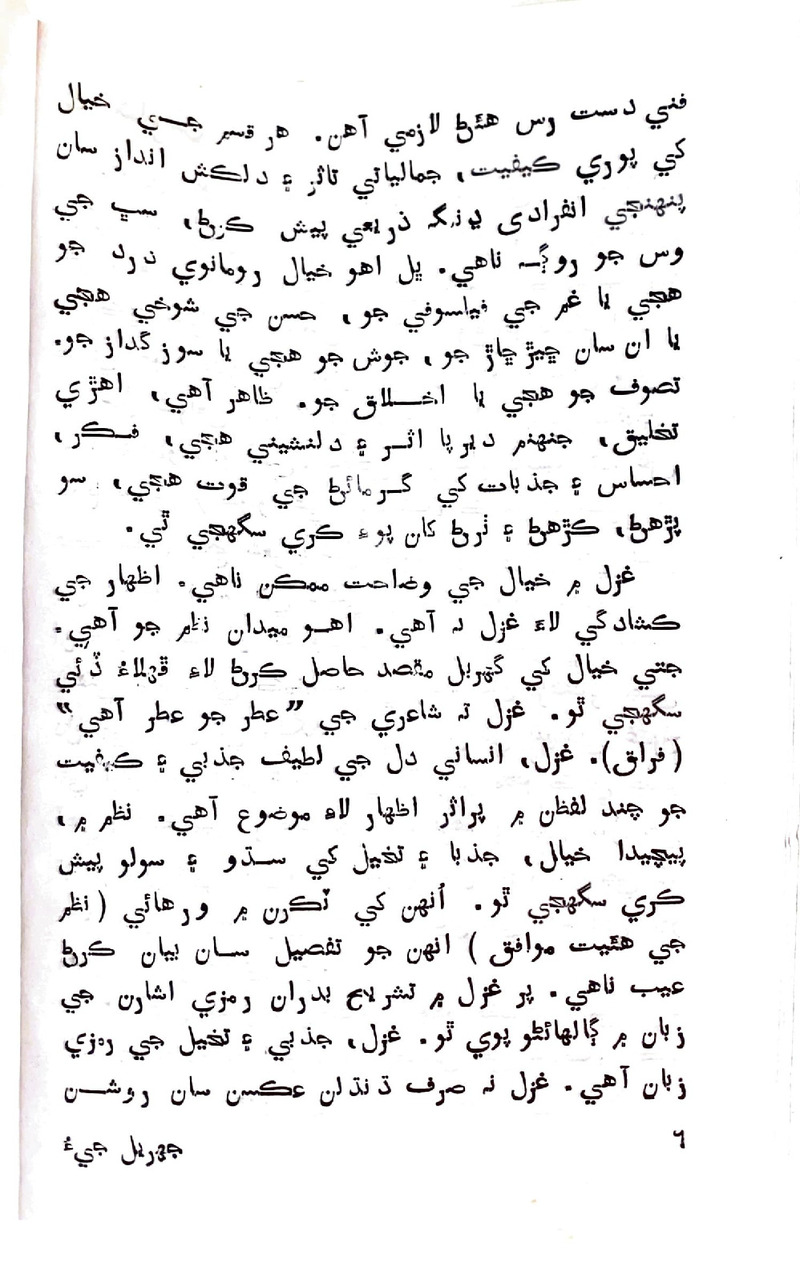 فني دست رس هئڻ لازمي آهن. هر قسم جي خيال
کي پوري ڪيفيت، جمالياتي تاثر ۽ دلڪش انداز سان
پنهنجي انفرادي ڍنگ ذريعي پيش ڪرڻ، سڀ جي
وس جو روڳ ناهي. ڀل اهو خيال رومانوي درد جو
هجي يا غم جي فيلسوفي جو، حسن جي شوخي هجي
يا ان سان ڇيڙ ڇاڙ جو، جوش جو هجي يا سوز گداز جو.
تصوف جو هجي يا اخلاق جو. ظاهر آهي، اهڙي
تخليق، جنهنم ديرپا اثر ۽ دلنشيني هجي، فڪر،
احساس ۽ جذبات کي گرمائڻ جي قوت هجي، سو
پڙهڻ، ڪڙهڻ ۽ ٺرڻ کان پوءِ ڪري سگهجي ٿي.
غزل ۾ خيال جي وضاحت ممڪن ناهي. اظهار جي
ڪشادگي لاءِ غزل نہ آهي. اهو ميدان نظم جو آهي.
جتي خيال کي گهربل مقصد حاصل ڪرڻ لاءِ ڦهلاءُ ڏئي
سگهجي ٿو. غزل تہ شاعري جي ”عطر جو عطر آهي“
(فراق). غزل، انساني دل جي لطيف جذبي ۽ ڪيفيت
جو چند لفظن ۾ پراثر اظهار لاءِ موضوع آهي. نظم ۾،
پيچيدا خيال، جذبا ۽ تخيل کي سڌو ۽ سولو پيش
ڪري سگهجي ٿو. اُنهن کي ٽڪرن ۾ ورهائي (نظم
جي هئيت موافق) انهن جو تفصيل سان بيان ڪرڻ
عيب ناهي. پر غزل ۾ تشريح بدران رمزي اشارن جي
زبان ۾ ڳالهائڻو پوي ٿو. غزل، جذبي ۽ تخيل جي رمزي
زبان آهي. غزل نہ صرف ڌنڌلن عڪسن سان روشن
٦
جهريل جيءُ